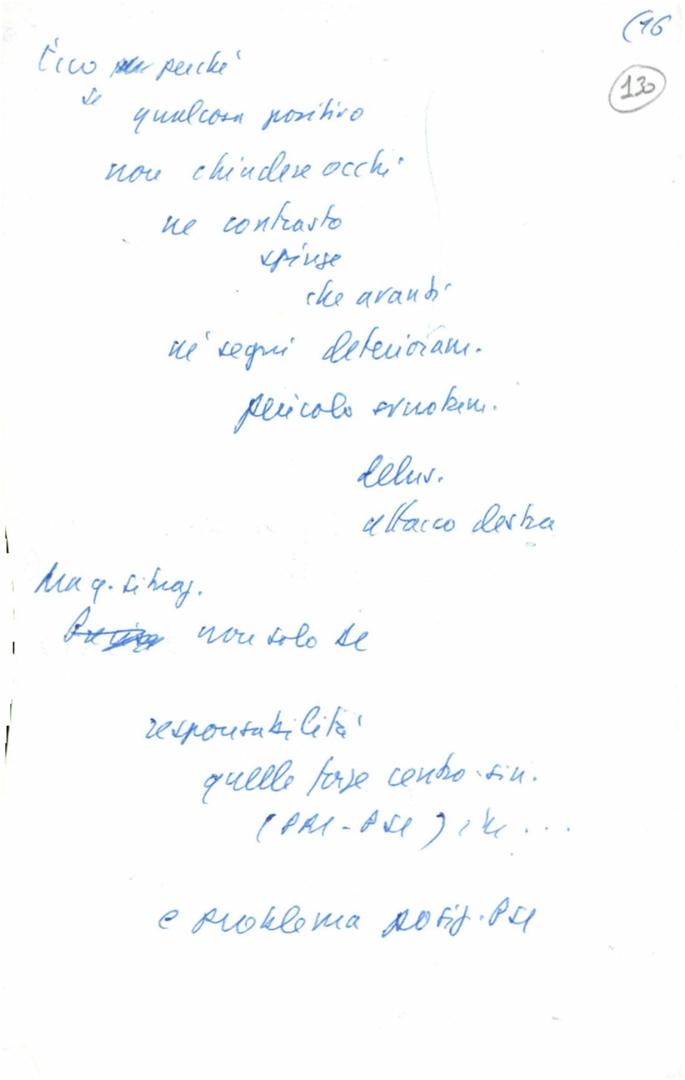 (16
130
Ecco perché
se
qualcosa positivo
non chiudere occhi
né contrasto
spinge
che avanti
né segni deterioram.
pericolo svuotam.
delus.
attacco destra
Ma q. situaz.
non solo se
responsabilità
quelle forze centro-sin.
(PRI-PSI) che ...
e problema posiz. PSI